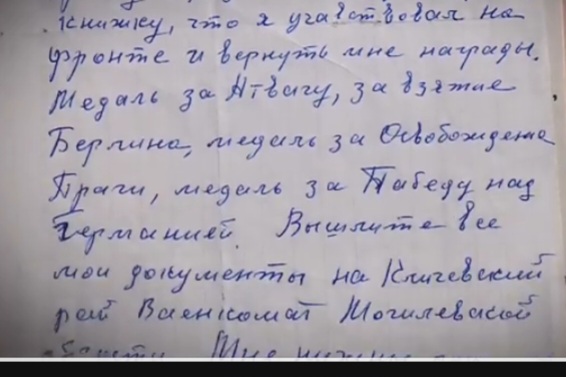 книжку, что я участвовал на
фронте и вернуть мне награды.
Медаль за Атвагу, за взятие
Берлина, медаль за Освобождение
Праги, медаль за Пабеду над
Германией. Вышлите все
мои документы на Кличевский
рай Ваенкомат Могилевской
Мне